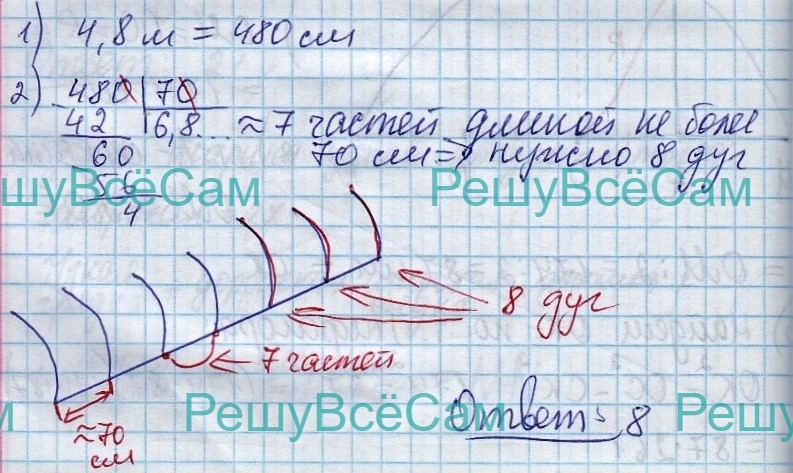 1) 4,8 м = 480 см
2) 480 | 70
42 6,8... ≈ 7 частей длиной не более
60 70 см => нужно 8 дуг
56
РешуВсёСам РешуВсёСам
4
8 дуг
7 частей
≈70
см
РешуВсёСам РешуВ
Ответ: 8